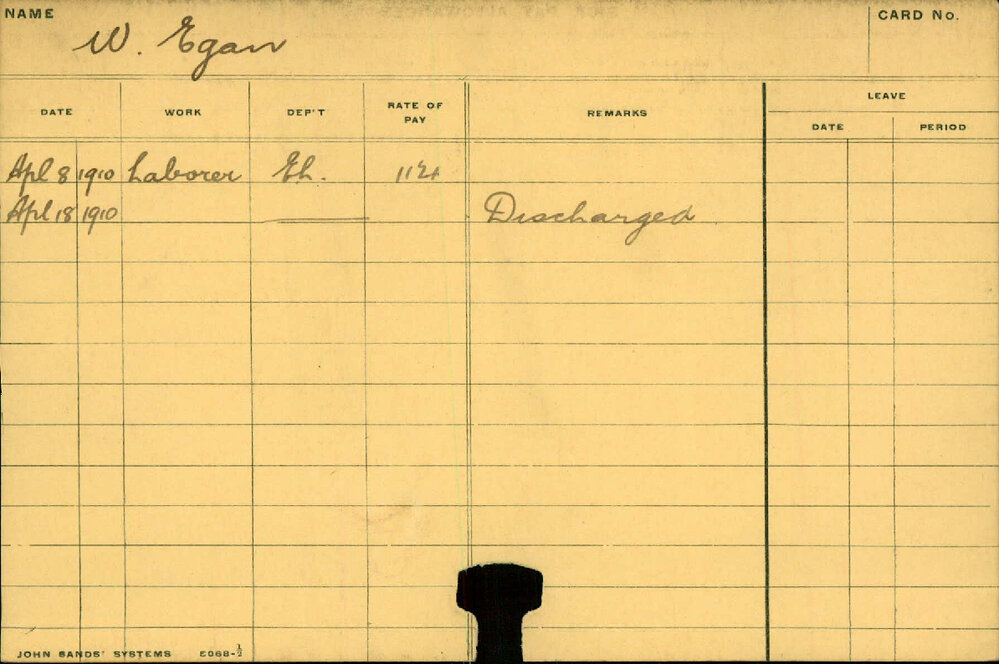 NAME W. Egan CARD No.
DATE WORK DEP'T RATE OF PAY REMARKS LEAVE
DATE PERIOD
Apl 8 1910 Laborer Eh.
Apl 18 1910 Discharged
JOHN SANDS' SYSTEMS